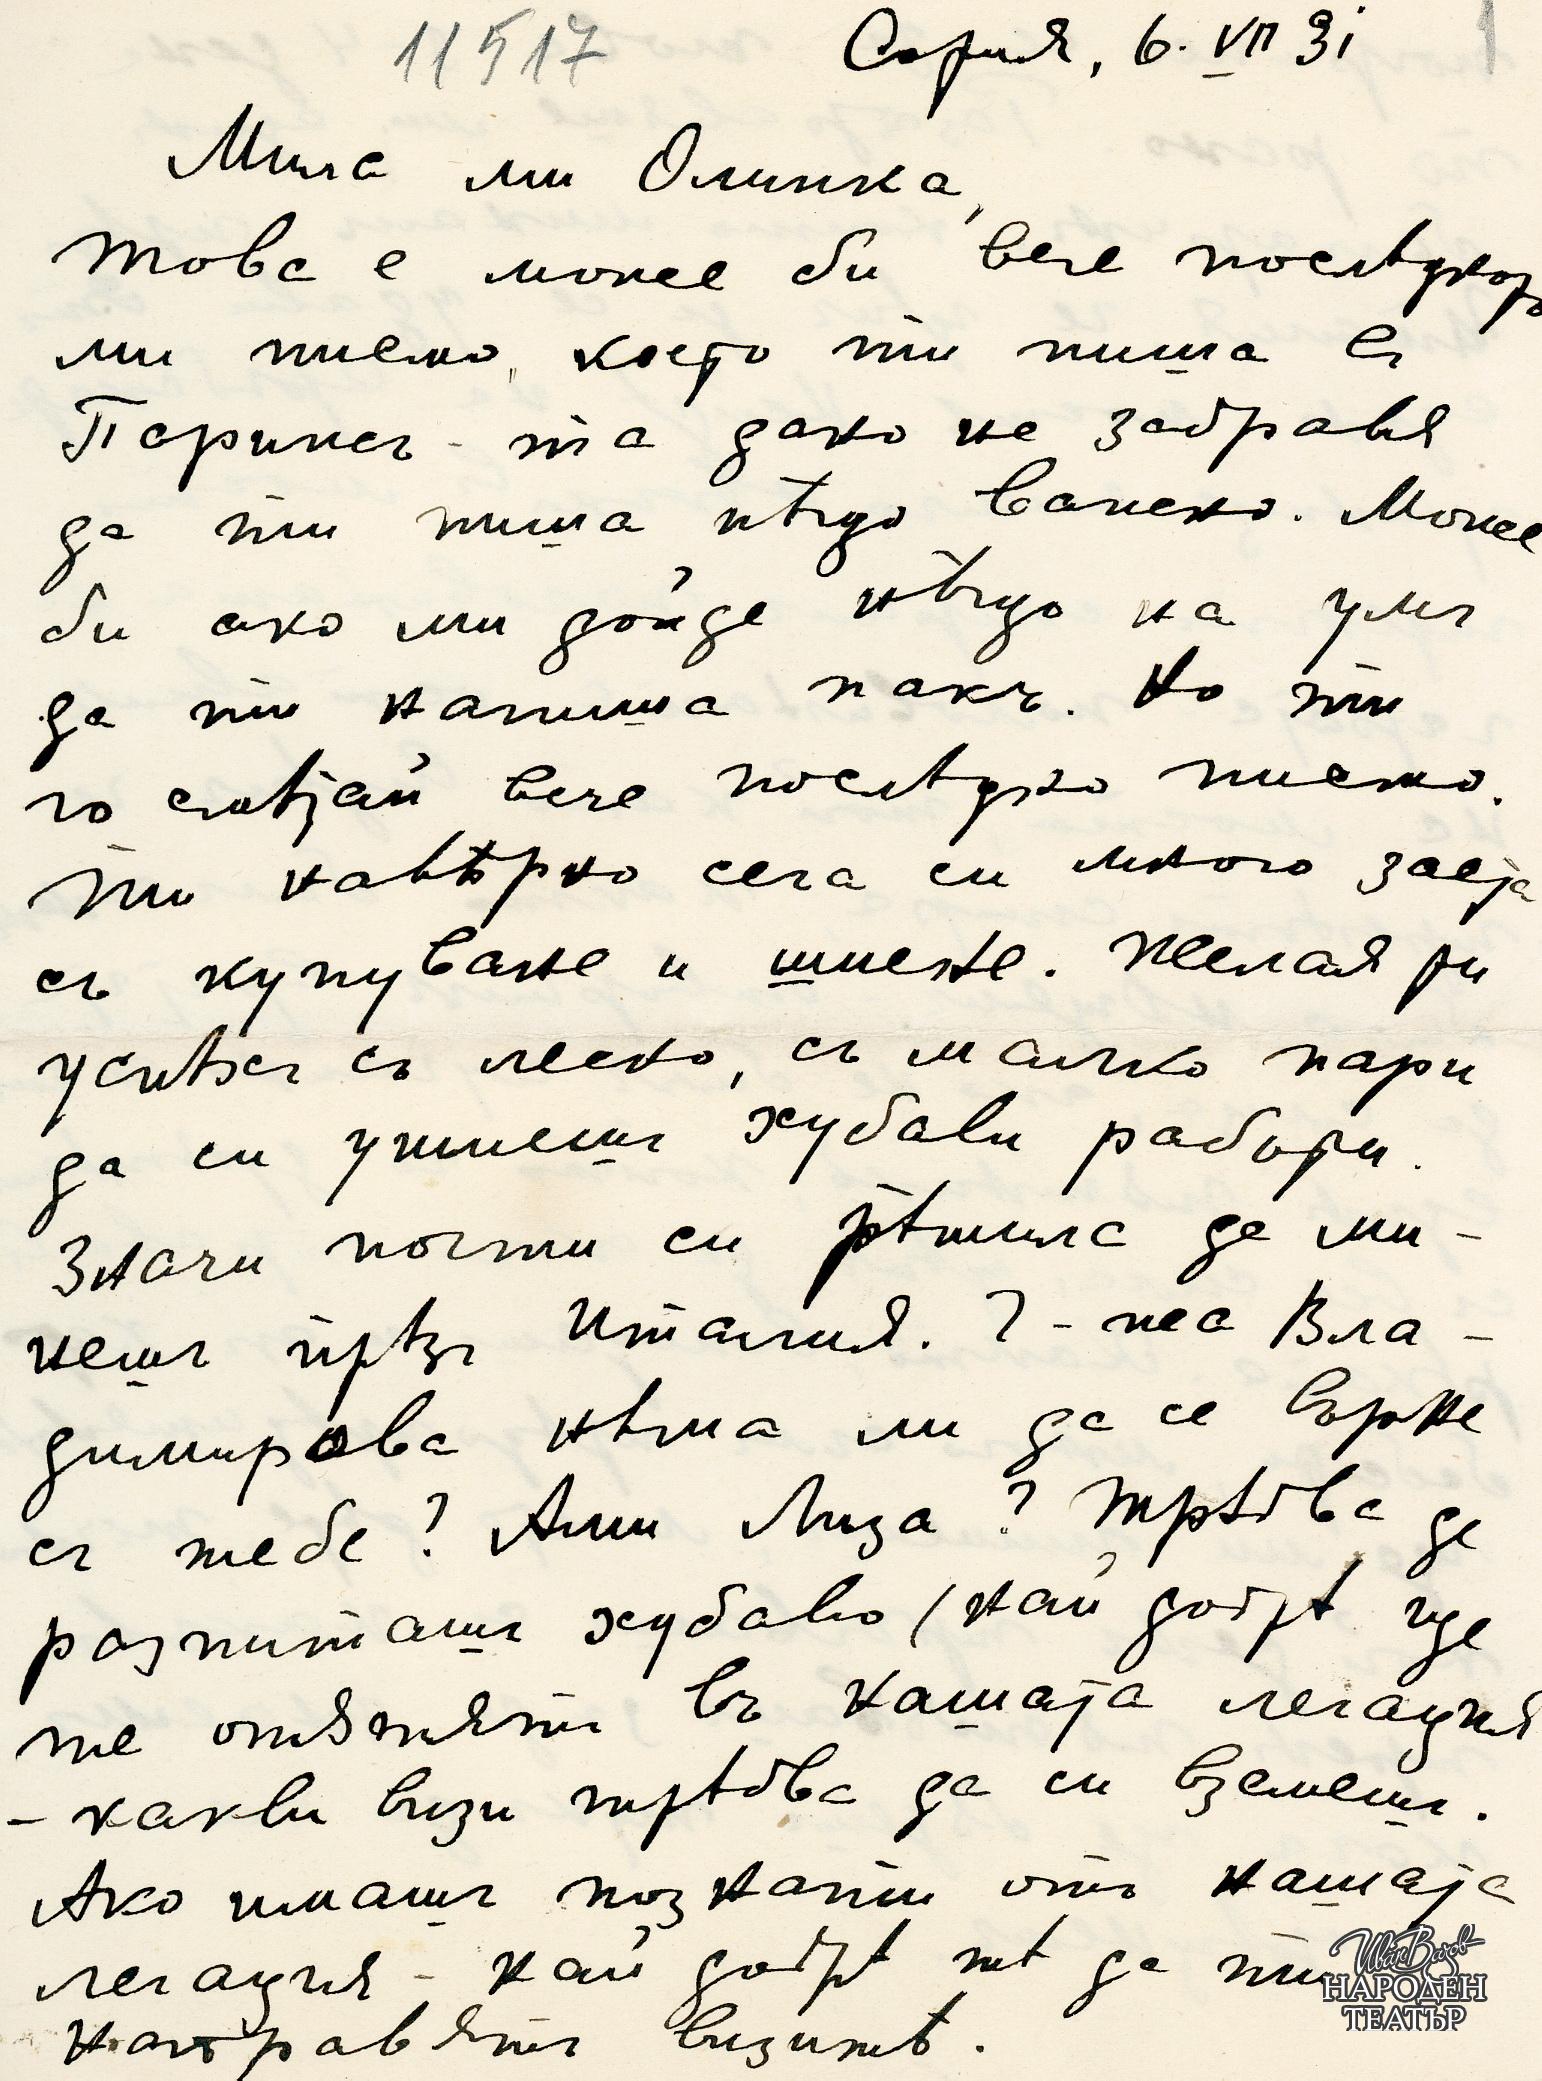 11517
София, 6. VII 31
Мила ми Олинка,
това е може би вече последното
ми писмо, което ти пиша въ
Парижъ - та дано не забравя
да ти пиша нѣщо важно. Може
би ако ми дойде нѣщо на умъ
да ти напиша пакъ. Но ти
го смѣтай вече послѣдно писмо.
Ти навѣрно сега си много заета
съ купуване и шиене. Желая ти
успѣхъ съ леско, съ малко пари
да си ушиешъ хубави работи.
Значи почти си рѣшила да ми-
нешъ прѣзъ Италия. Г-жа Вла-
димирова нѣма ли да се върне
съ тебе? Ами Лиза? Трѣбва да
разпиташъ хубаво (най добрѣ ще
те опѫтятъ въ нашата легация
- какви визи трѣбва да си вземешъ.
Ако имашъ познати отъ нашата
легация - най добрѣ тѣ да ти
направятъ визитѣ.
Иван Вазов
НАРОДЕН
ТЕАТЪР